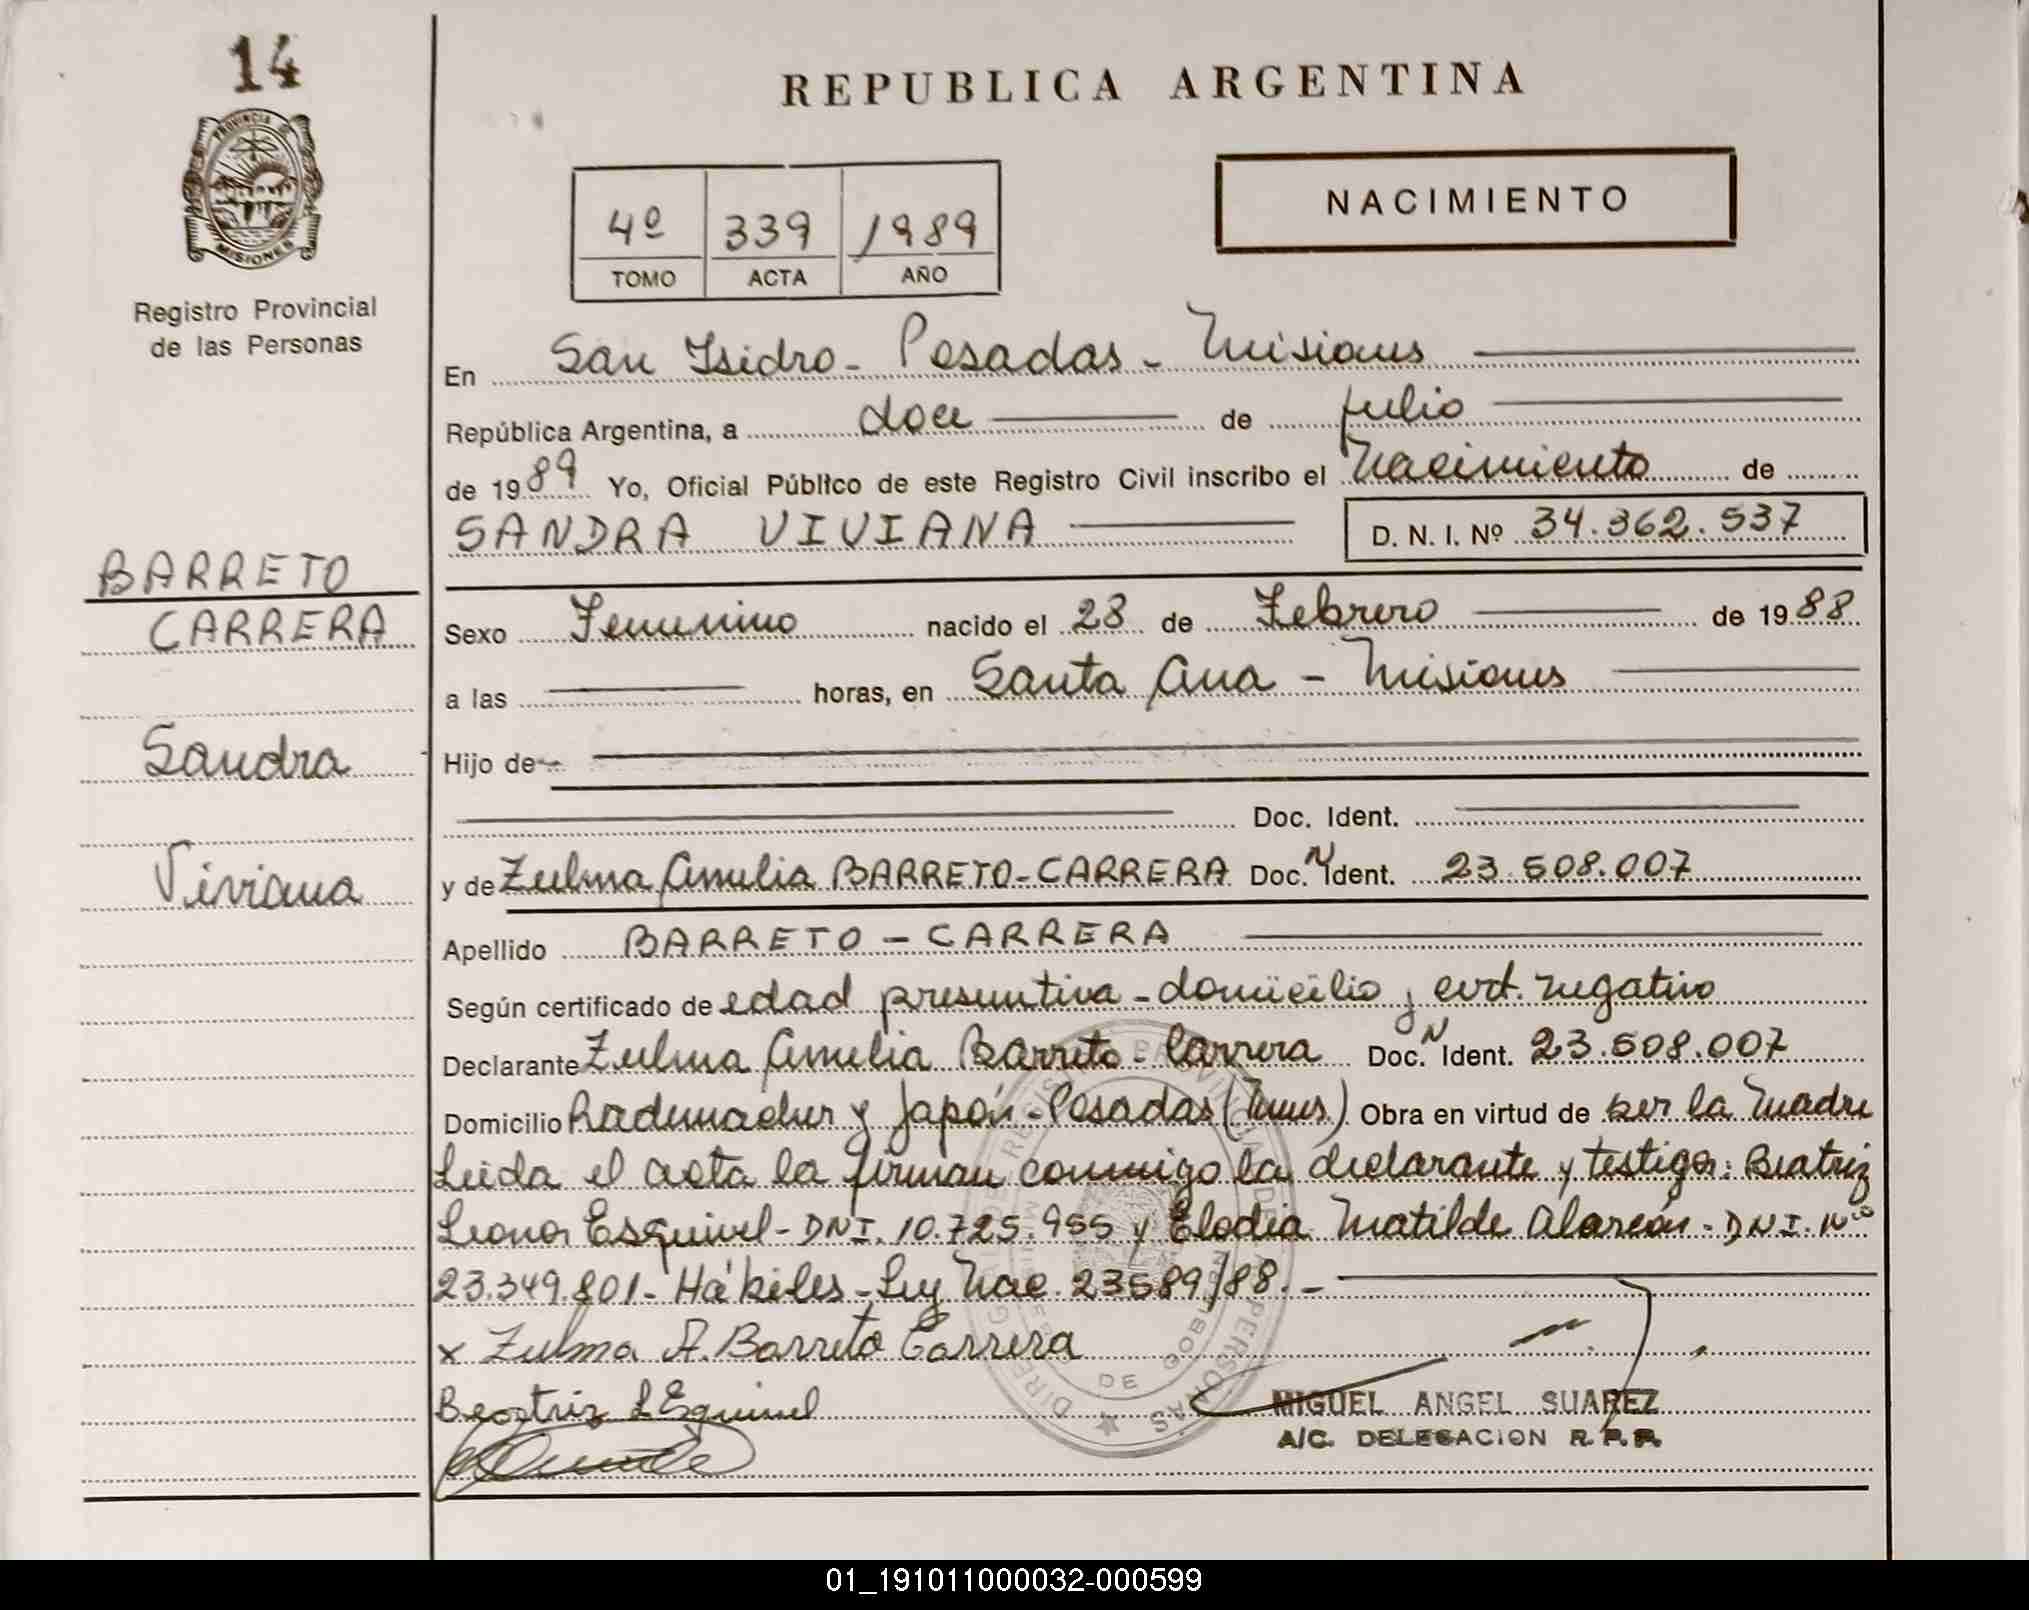 14
PROVINCIA DE
MISIONES
Registro Provincial
de las Personas
BARRETO
CARRERA
Sandra
Viviana
REPUBLICA ARGENTINA
NACIMIENTO
4º 339 1989
TOMO ACTA AÑO
En San Isidro - Posadas - Misiones
República Argentina, a doce de julio
de 1989 Yo, Oficial Público de este Registro Civil inscribo el Nacimiento de
SANDRA VIVIANA D. N. I. Nº 34.362.537
Sexo Femenino nacido el 28 de Febrero de 1988
a las horas, en Santa Ana - Misiones
Hijo de
Doc. Ident.
y de Zulma Amelia BARRETO-CARRERA Doc. N Ident. 23.508.007
Apellido BARRETO - CARRERA
Según certificado de edad presuntiva - domicilio y cert. negativo
Declarante Zulma Amelia Barreto - Carrera Doc. N Ident. 23.508.007
Domicilio Rademacher y Japón - Posadas (Mnes.) Obra en virtud de ser la Madre
Leida el acta la firman conmigo la declarante y testigos: Beatriz
Leonor Esquivel - DNI. 10.725.955 y Elodia Matilde Alarcón - DNI. Nº
23.349.801 - Hábiles - Ley Nac. 23589/88. -
x Zulma A. Barreto Carrera
Beatriz L Esquivel
MIGUEL ANGEL SUAREZ
A/C. DELEGACION R. P. P.
01_191011000032-000599